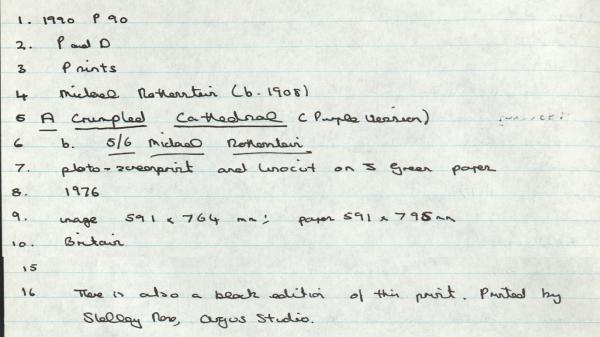 1. 1990 P 90
2. P and D
3 Prints
4 Michael Rothenstein (b. 1908)
5 A Crumpled Cathedral (Purple Version)
6 b. 5/6 Michael Rothenstein
7. photo-screenprint and linocut on J Green paper
8. 1976
9. image 591 x 764 mm; paper 591 x 795 mm
10. Britain
15
16 There is also a black edition of this print. Printed by
Shelley Rose, Argus Studio.